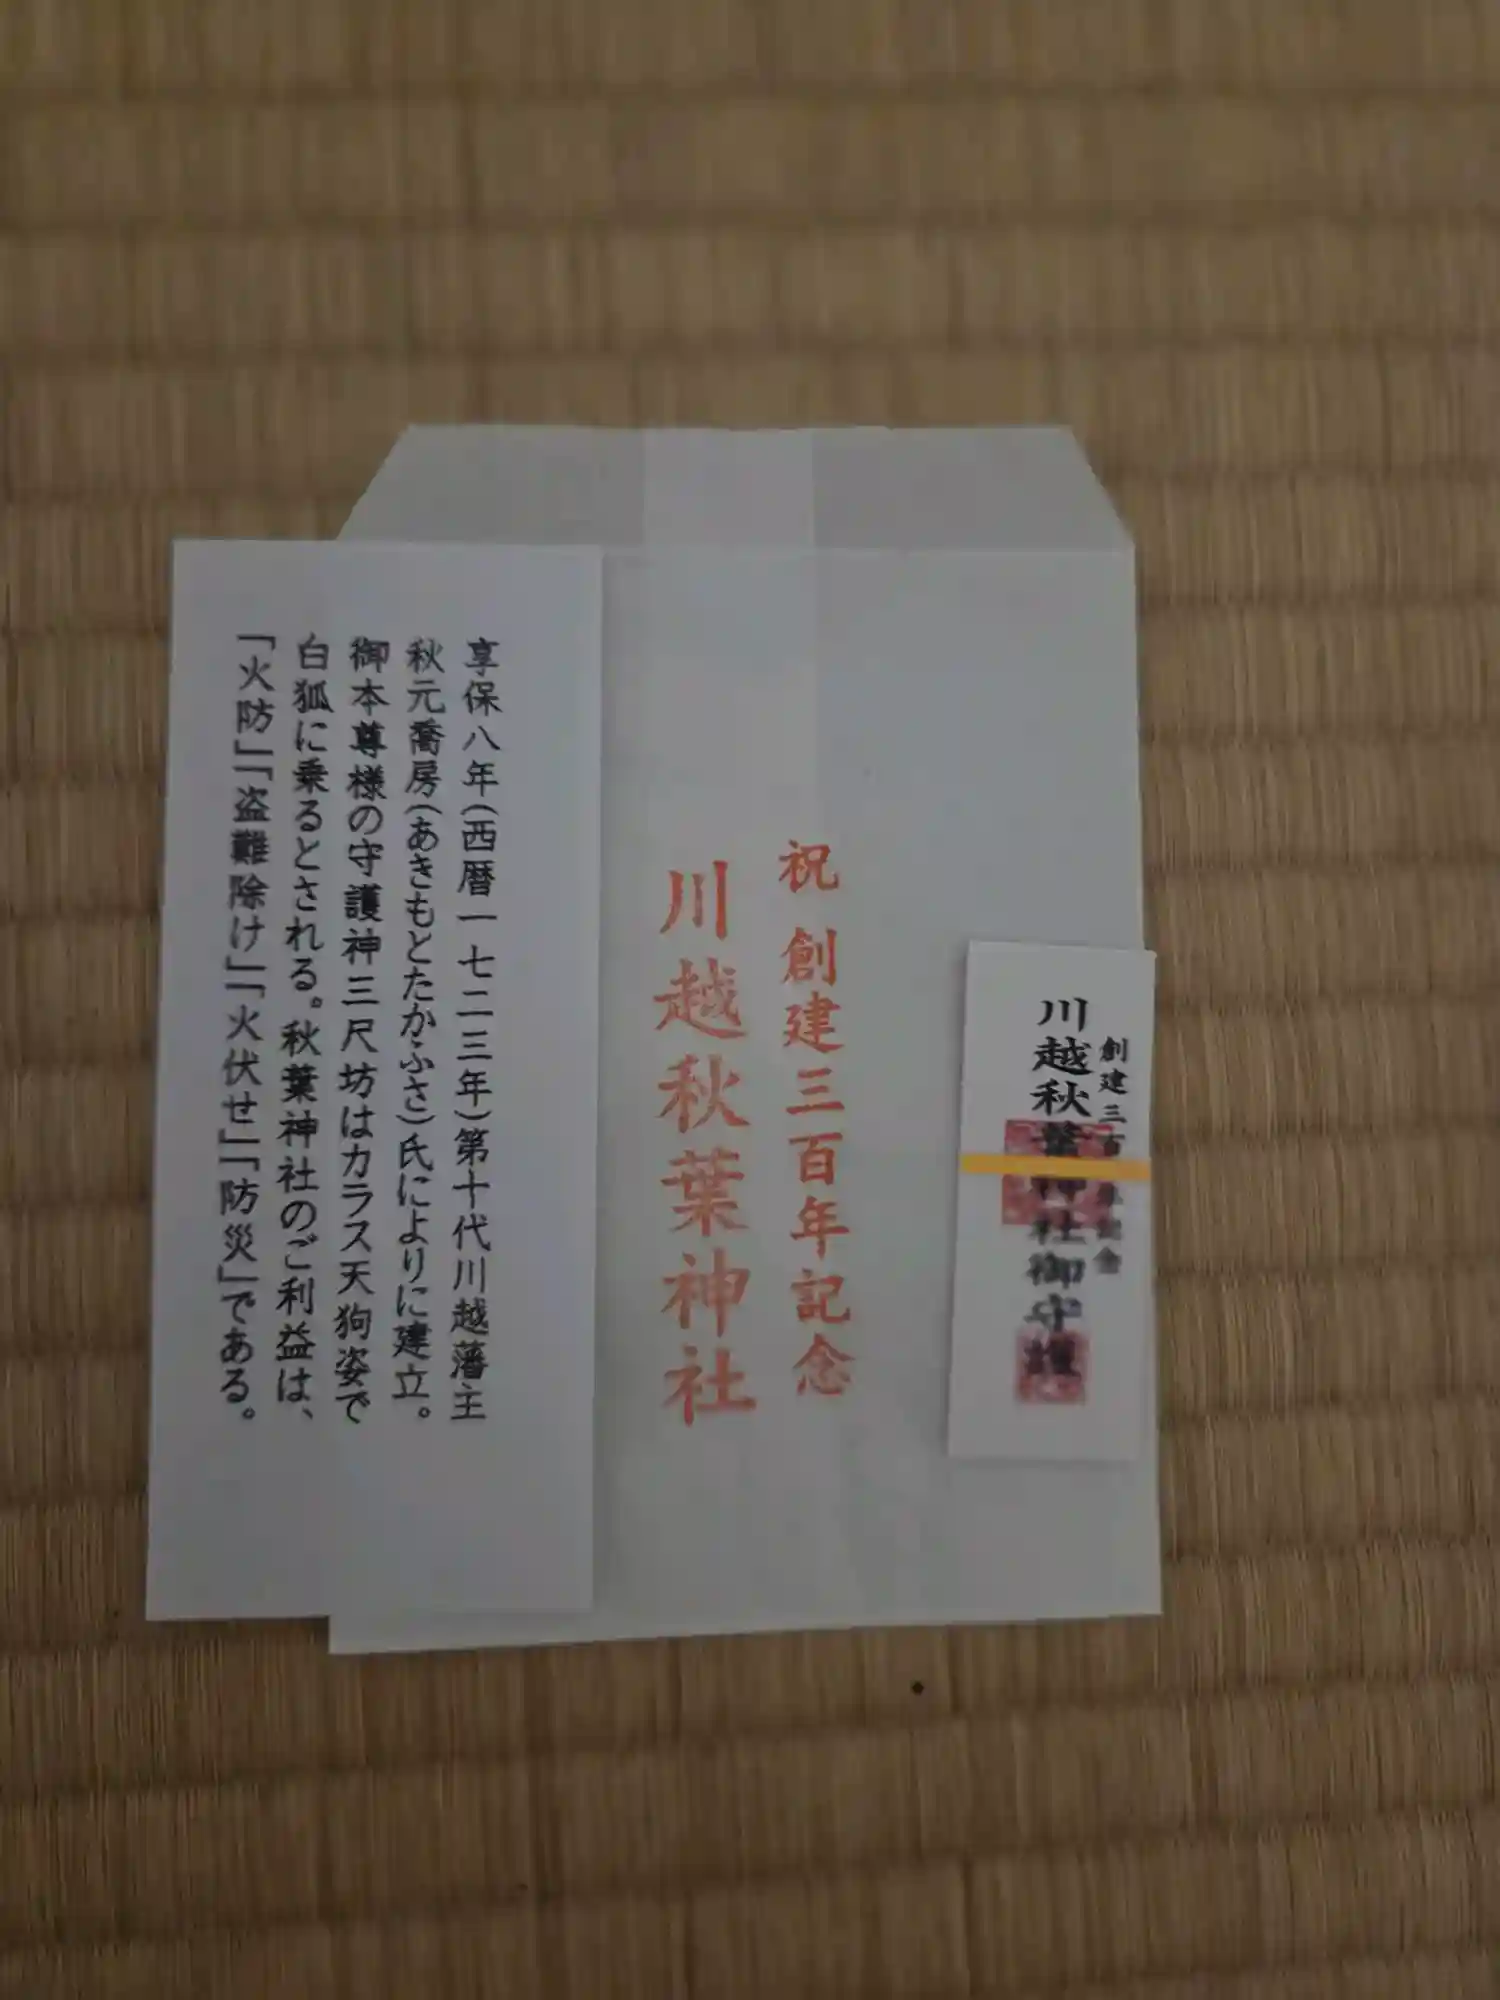 創建三百年記念
川越秋葉神社御守護
祝 創建三百年記念
川越秋葉神社
享保八年(西暦一七二三年)第十代川越藩主
秋元喬房(あきもとたかふさ)氏によりに建立。
御本尊様の守護神三尺坊はカラス天狗姿で
白狐に乗るとされる。秋葉神社のご利益は、
「火防」「盗難除け」「火伏せ」「防災」である。